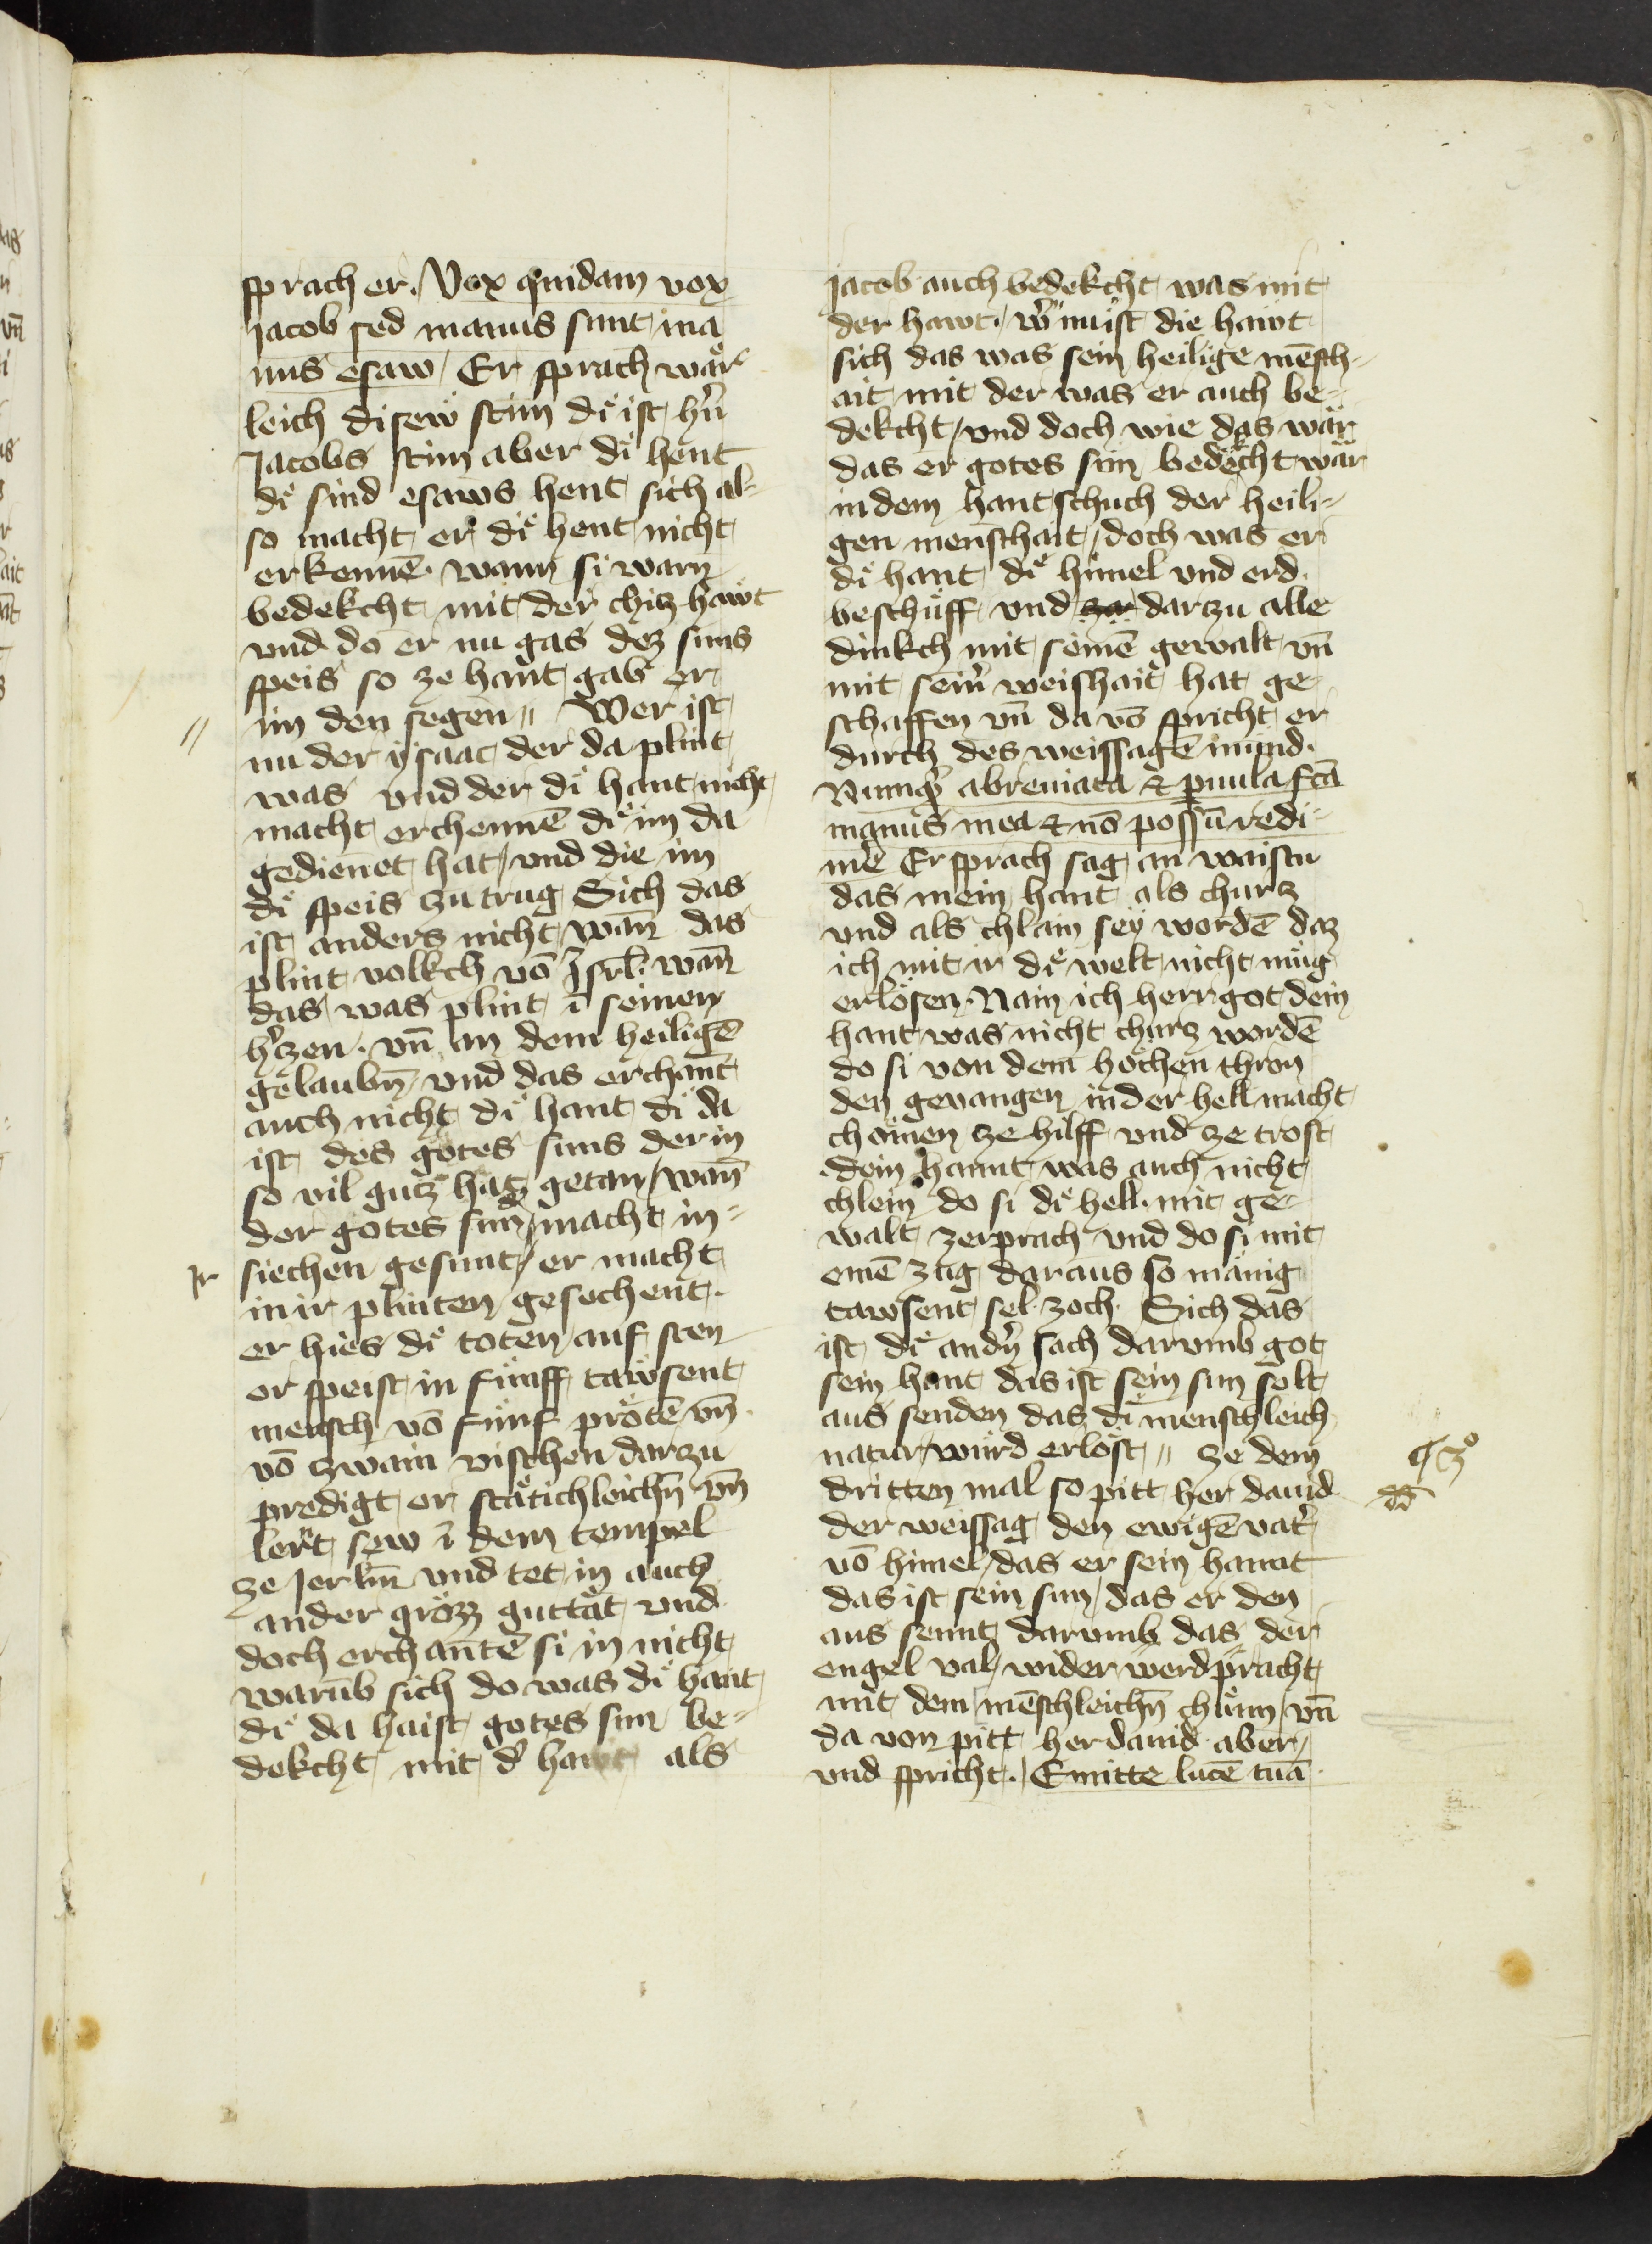 sprach er. Vox quidam vox
Jacob sed manus sunt ma
nus esaw / Er sprach wär
leich disew stim dı̈ ist hern̄
Jacobs stim aber dı̈ hent
dı̈ sind esaws hent sich al-
so macht er dı̈ hent nicht
erkennē. wann si warn
bedekcht mit der chiz hawt
vnd do er nu gas dez suns
speis so ze hant gab er
im den segen „ Wer ist
nu der ÿsaac der da plint
was vnd der dı̈ hant nicht
macht erchennē dı̈ im da
gedienet hat / vnd die im
dı̈ speis zu trug Sich das
ist anders nicht wan̄ das
plint volkch vō Isrl̄. wan̄
das was plint ī seinen
hʼzen. vn̄ an dem heiligē
gelaubn̄ / vnd das erchant
auch nicht dı̈ hant di da
ist des gotes suns der in
so vil gutz hat getan / wan̄
der gotes sun macht in-
Ir siechen gesunt / er macht
in ir plinten gesechent.
er hies dı̈ toten auf sten
er speist in fümff tawsent
mensch vō fünf prötē vn̄
vō zwain vischen dar zu
predigt er stätichleichn̄ vn̄
lert sew ī dem tempel
ze Jerlm̄ vnd tet in auch
ander grözz guttät vnd
doch erchantē si in nicht
warūb sich do was dı̈ hant
dı̈ da haist gotes sun be-
dekcht mit dʼ hawt als
jacob auch bedekcht was mit
der hawt. wʼ nu ist die hawt
sich das was sein heilige mēsch-
ait mit der was er auch be-
dekcht / vnd doch wie das wär
das er gotes sun bedecht wär
in dem hantschuch der heili-
gen menschait / doch was er
dı̈ hant dı̈ himel vnd erd
beschüff vnd zw dar zu alle
dinkch mit seinē gewalt vn̄
mit seinʼ weishait hat ge
schaffen vn̄ da vō spricht er
durch des weissagē mund.
Numqʼ abreuiata & puula fcā
manus mea & nō possū redi-
mē Er sprach sag an waistu
das mein hant als churz
vnd als chlain seÿ wordē daz
ich mit ir dı̈ welt nicht müg
erlösen. Nain ich herr got dein
hant was nicht churz wordē
do si von dem höchen thron
den geuangen in der hell macht
chömen ze hilff vnd ze trost
dein hannt was auch nicht
chlein do si dı̈ hell. mit ge-
walt zerprach vnd do si mit
einē zug daraus so mänig
tawsent sel zoch. Sich das
ist dı̈ andʼ sach darumb got
sein hant das ist sein sun solt
aus senden das dı̈ menschleich
natur würd erlöst „ ze dem
dritten mal so pitt her dauid
der weissag den ewigē vatʼ
vō himel / das er sein hannt
das ist sein sun / das er den
aus sennt darumb das der
engel val / wider werd pracht
mit dem mēschleichn̄ chünn / vn̄
da von pitt her dauid aber /
vnd spricht. / Emitte lucē tuā